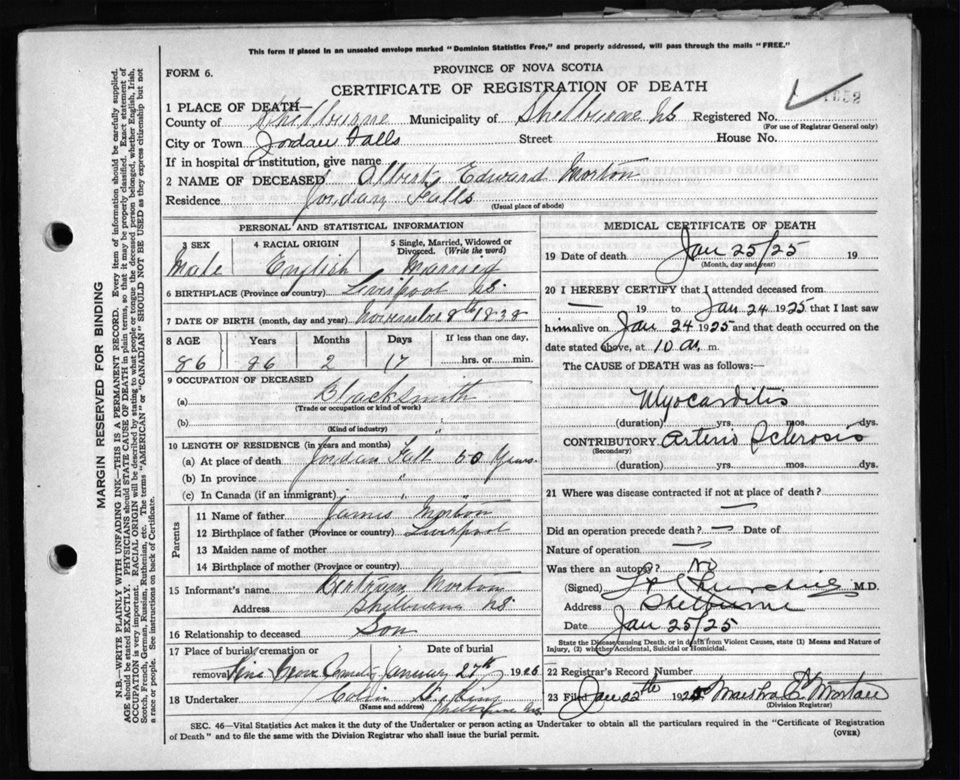 This form if placed in an unsealed envelope marked "Dominion Statistics Free," and properly addressed, will pass through the mails "FREE."
FORM 6.
PROVINCE OF NOVA SCOTIA
CERTIFICATE OF REGISTRATION OF DEATH
1 PLACE OF DEATH—
County of Shelburne Municipality of Shelburne NS Registered No.
(For use of Registrar General only)
City or Town Jordan Falls Street House No.
If in hospital or institution, give name
2 NAME OF DECEASED Albert Edward Morton
Residence Jordan Falls
(Usual place of abode)
PERSONAL AND STATISTICAL INFORMATION
3 SEX 4 RACIAL ORIGIN 5 Single, Married, Widowed or Divorced. (Write the word)
Male English Married
6 BIRTHPLACE (Province or country) Liverpool NS.
7 DATE OF BIRTH (month, day and year) November 8th 1838
8 AGE Years Months Days If less than one day,
86 86 2 17 hrs. or min.
9 OCCUPATION OF DECEASED
(a) Blacksmith
(Trade or occupation or kind of work)
(b) "
(Kind of industry)
10 LENGTH OF RESIDENCE (in years and months)
(a) At place of death Jordan Fall 60 Years
(b) In province "
(c) In Canada (if an immigrant) " "
Parents
11 Name of father James Morton
12 Birthplace of father (Province or country) Liverpool
13 Maiden name of mother
14 Birthplace of mother (Province or country)
15 Informant's name Bertram Morton
Address Shelburne NS.
16 Relationship to deceased Son
17 Place of burial, cremation or Date of burial
removal Pine Grove Cemetery January 27th 1925
18 Undertaker Colin
(Name and address)
MEDICAL CERTIFICATE OF DEATH
19 Date of death Jan 25/25 19
(Month, day and year)
20 I HEREBY CERTIFY that I attended deceased from
— 19 to Jan 24 1925 that I last saw
him alive on Jan 24 1925 and that death occurred on
date stated above, at 10 a. m.
The CAUSE of DEATH was as follows:
Myocarditis
(duration) yrs. mos. dys.
CONTRIBUTORY Arterio Sclerosis
(Secondary)
(duration) yrs. mos. dys.
21 Where was disease contracted if not at place of death?
—
Did an operation precede death? — Date of
Nature of operation —
Was there an autopsy? No
(Signed) M.D.
Address Shelburne
Date Jan 25/25
State the Disease causing Death, or in death from Violent Causes, state (1) Means and Nature of
Injury, (2) whether Accidental, Suicidal or Homicidal.
22 Registrar's Record Number
23 Filed Jan 28th 1925
(Division Registrar)
SEC. 46—Vital Statistics Act makes it the duty of the Undertaker or person acting as Undertaker to obtain all the particulars required in the "Certificate of Registration
of Death" and to file the same with the Division Registrar who shall issue the burial permit.
(OVER)
MARGIN RESERVED FOR BINDING
N.B.—WRITE PLAINLY WITH UNFADING INK—THIS IS A PERMANENT RECORD. Every item of information should be carefully supplied.
AGE should be stated EXACTLY. PHYSICIANS should STATE CAUSE OF DEATH in plain terms, so that it may be properly classified. Exact statement of
OCCUPATION is very important. RACIAL ORIGIN will be described by stating to what people or tongue the deceased person belonged, whether English, Irish,
Scotch, French, German, Russian, Ruthenian, etc. The terms "AMERICAN" or "CANADIAN" SHOULD NOT BE USED as they express citizenship but not
a race or people. See instructions on back of Certificate.